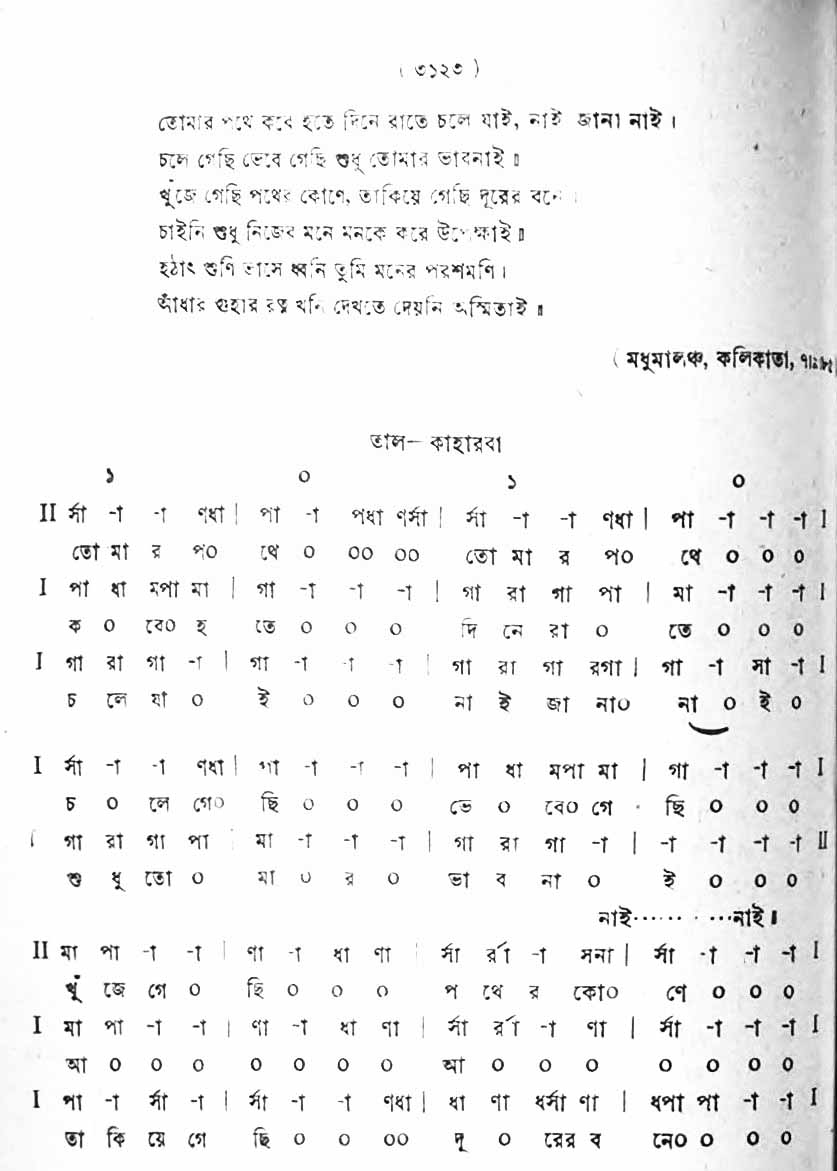 ( ৩১২৩ )
তোমার পথে কবে হতে দিনে রাতে চলে যাই, নাই জানা নাই।
চলে গেছি ভেবে গেছি শুধু তোমার ভাবনাই॥
খুঁজে গেছি পথের কোণে, তাকিয়ে গেছি দূরের বনে।
চাইনি শুধু নিজের মনে মনকে করে উপেক্ষাই॥
হঠাৎ শুনি ভাসে ধ্বনি তুমি মনের পরশমণি।
আঁধার গুহার রত্ন খনি দেখতে দেয়নি অস্মিতাই॥
( মধুমালঞ্চ, কলিকাতা,
তাল— কাহারবা
১ ০ ১ ০
II র্সা -া -া ণধা | পা -া পধা ণর্সা | র্সা -া -া ণধা | পা -া -া -া I
তো মা র প০ থে ০ ০০ ০০ তো মা র প০ থে ০ ০ ০
I পা ধা মপা মা | গা -া -া -া | গা রা গা পা | মা -া -া -া I
ক ০ বে০ হ তে ০ ০ ০ দি নে রা ০ তে ০ ০ ০
I গা রা গা -া | গা -া -া -া | গা রা গা রগা | গা -া সা -া I
চ লে যা ০ ই ০ ০ ০ না ই জা না০ না ০ ই ০
I র্সা -া -া ণধা | পা -া -া -া | পা ধা মপা মা | গা -া -া -া I
চ ০ লে গে০ ছি ০ ০ ০ ভে ০ বে০ গে ছি ০ ০ ০
I গা রা গা পা | মা -া -া -া | গা রা গা -া | -া -া -া -া II
শু ধু তো ০ মা ০ র ০ ভা ব না ০ ই ০ ০ ০
নাই·········নাই॥
II মা পা -া -া | ণা -া ধা ণা | র্সা র্রা -া সনা | র্সা -া -া -া I
খুঁ জে গে ০ ছি ০ ০ ০ প থে র কো০ ণে ০ ০ ০
I মা পা -া -া | ণা -া ধা ণা | র্সা র্রা -া ণা | র্সা -া -া -া I
আ ০ ০ ০ ০ ০ ০ ০ আ ০ ০ ০ ০ ০ ০ ০
I পা -া র্সা -া | র্সা -া -া ণধা | ধা ণা ধর্সা ণা | ধপা পা -া -া I
তা কি য়ে গে ছি ০ ০ ০০ দূ ০ রের ব নে০ ০ ০ ০